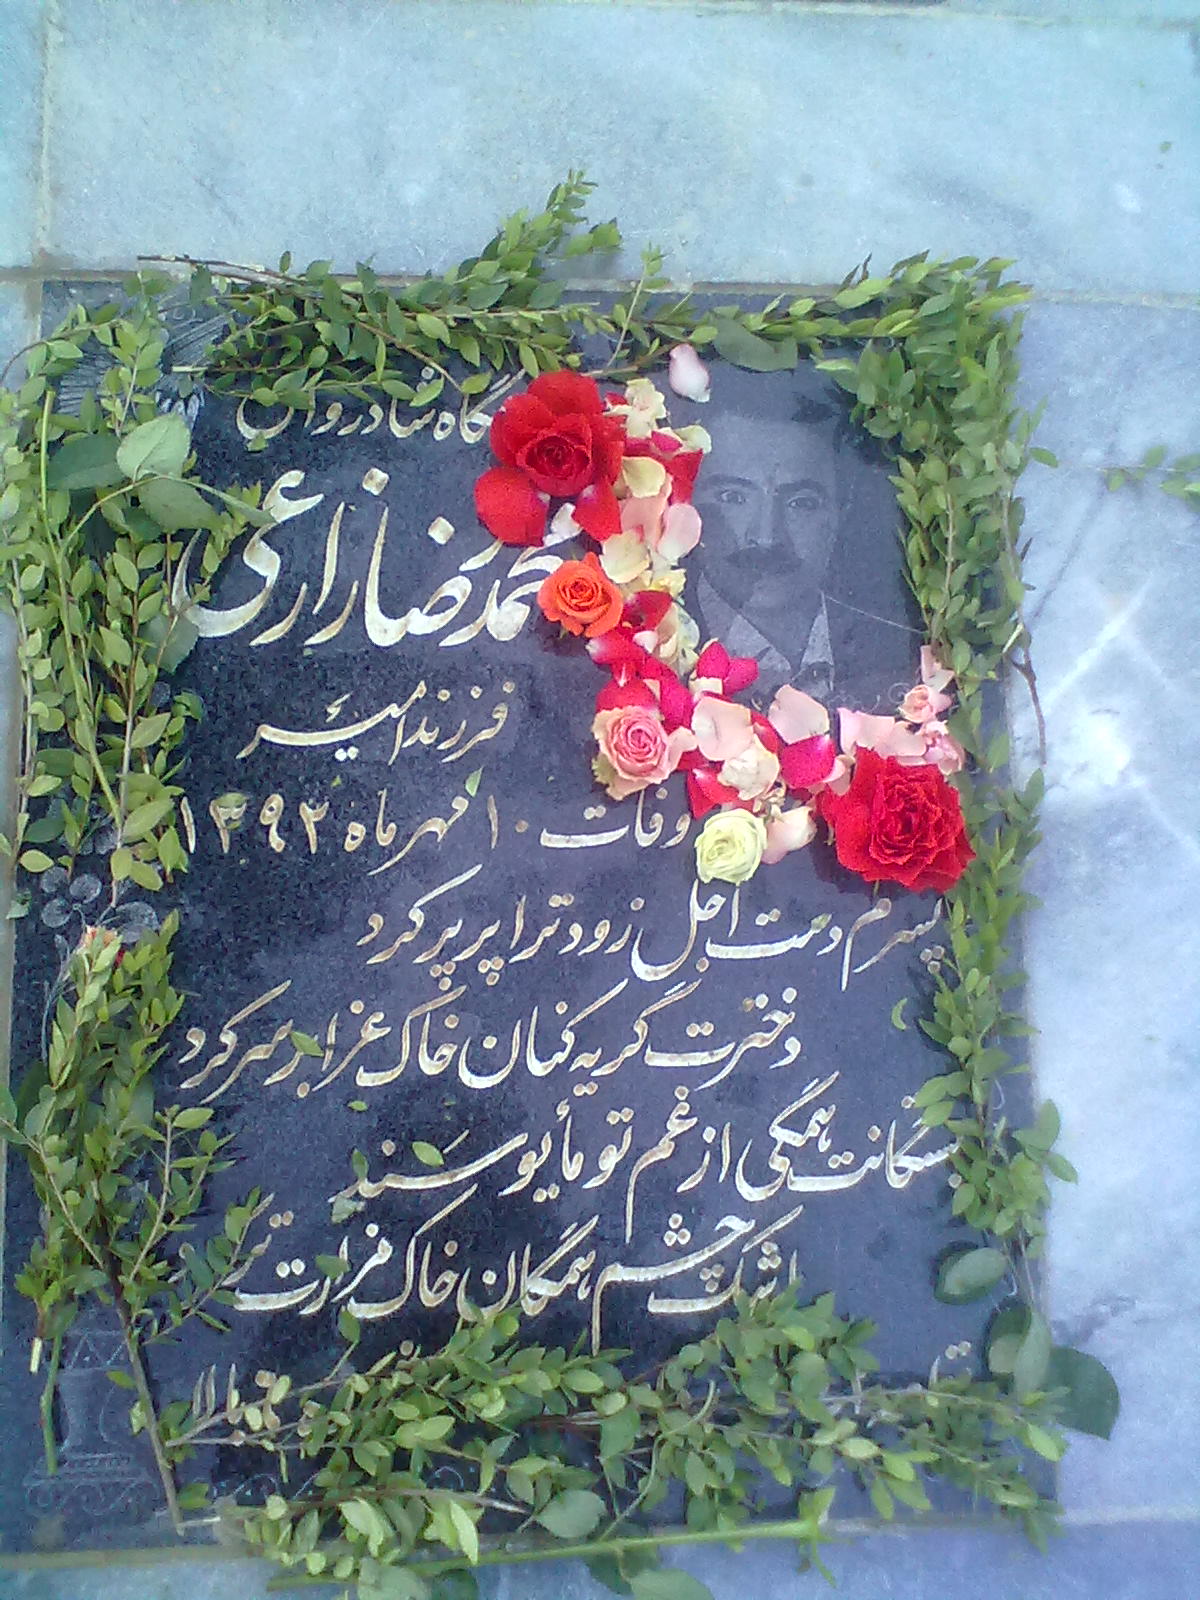 شادروان
محمدرضا زارعی
فرزند امیر
وفات ۱۰ مهر ماه ۱۳۹۲
پسرم دست اجل زود ترا پرپر کرد
دخترت گریه کنان خاک عزا بر سر کرد
بستگانت همگی از غم تو مأیوسند
اشک چشم همگان خاک مزارت تر